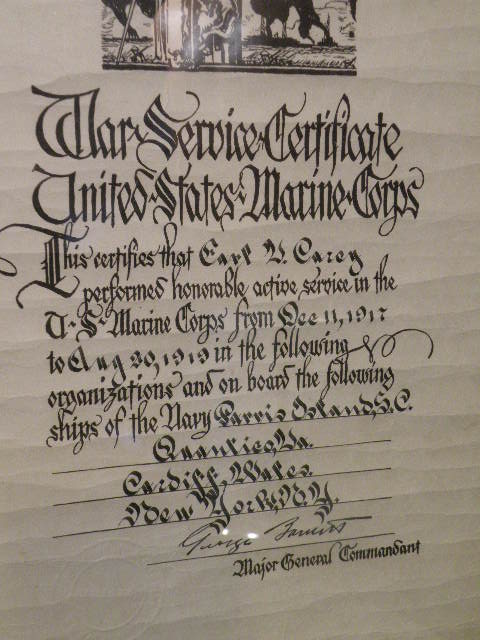 War Service Certificate
United States Marine Corps
This certifies that Earl V. Carey
performed honorable active service in the
U.S. Marine Corps from Dec 11, 1917
to Aug 20, 1919 in the following
organizations and on board the following
ships of the Navy Parris Island, S.C.
Quantico, Va.
Cardiff, Wales.
New York, N.Y.
George Barnett
Major General Commandant